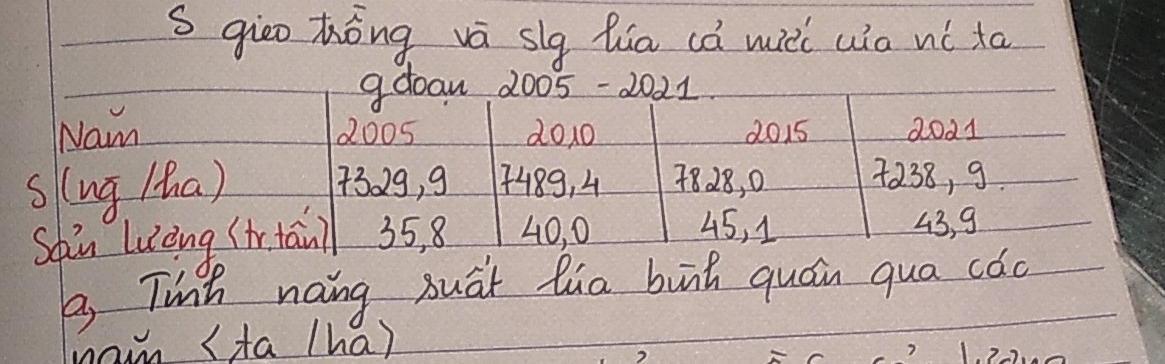 S gieo trồng và slg lúa cả nước của nc ta
gđoạn 2005 - 2021.
Năm 2005 2010 2015 2021
S (ng /ha) 7329,9 7489,4 7828,0 7238,9.
Sản lượng (tr.tấn) 35,8 40,0 45,1 43,9
a, Tính năng suất lúa bình quân qua các
năm (tạ /ha)